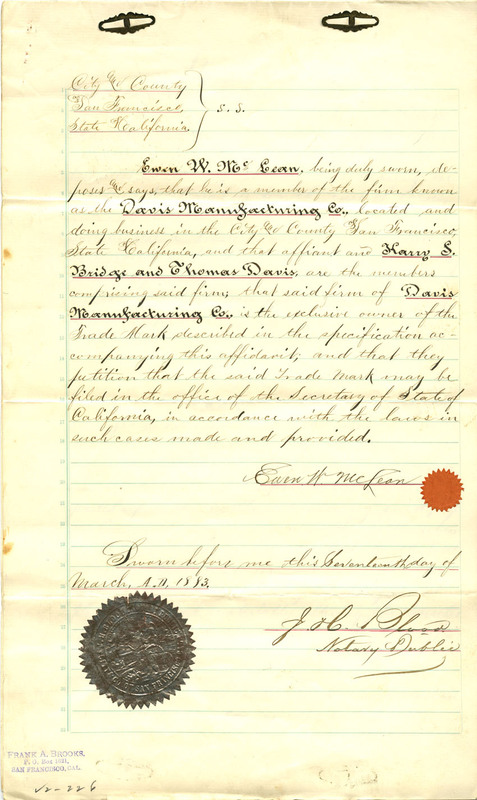 City and County
San Francisco,
State California.
S. S.
Ewen W. Mc Lean, being duly sworn, de-
poses and says, that he is a member of the firm known
as the Davis Manufacturing Co., located and
doing business in the City and County San Francisco,
State California, and that affiant and Harry S.
Bridge and Thomas Davis, are the members
comprising said firm; that said firm of Davis
Manufacturing Co., is the exclusive owner of the
Trade Mark described in the specification ac-
companying this affidavit; and that they
petition that the said Trade Mark may be
filed in the office of the Secretary of State of
California, in accordance with the laws in
such cases made and provided.
Ewen W McLean
Sworn before me this Seventeenth day of
March, A.D. 1883.
J H Blood
Notary Public
FRANK A. BROOKS,
P. O. Box
SAN FRANCISCO, CAL.